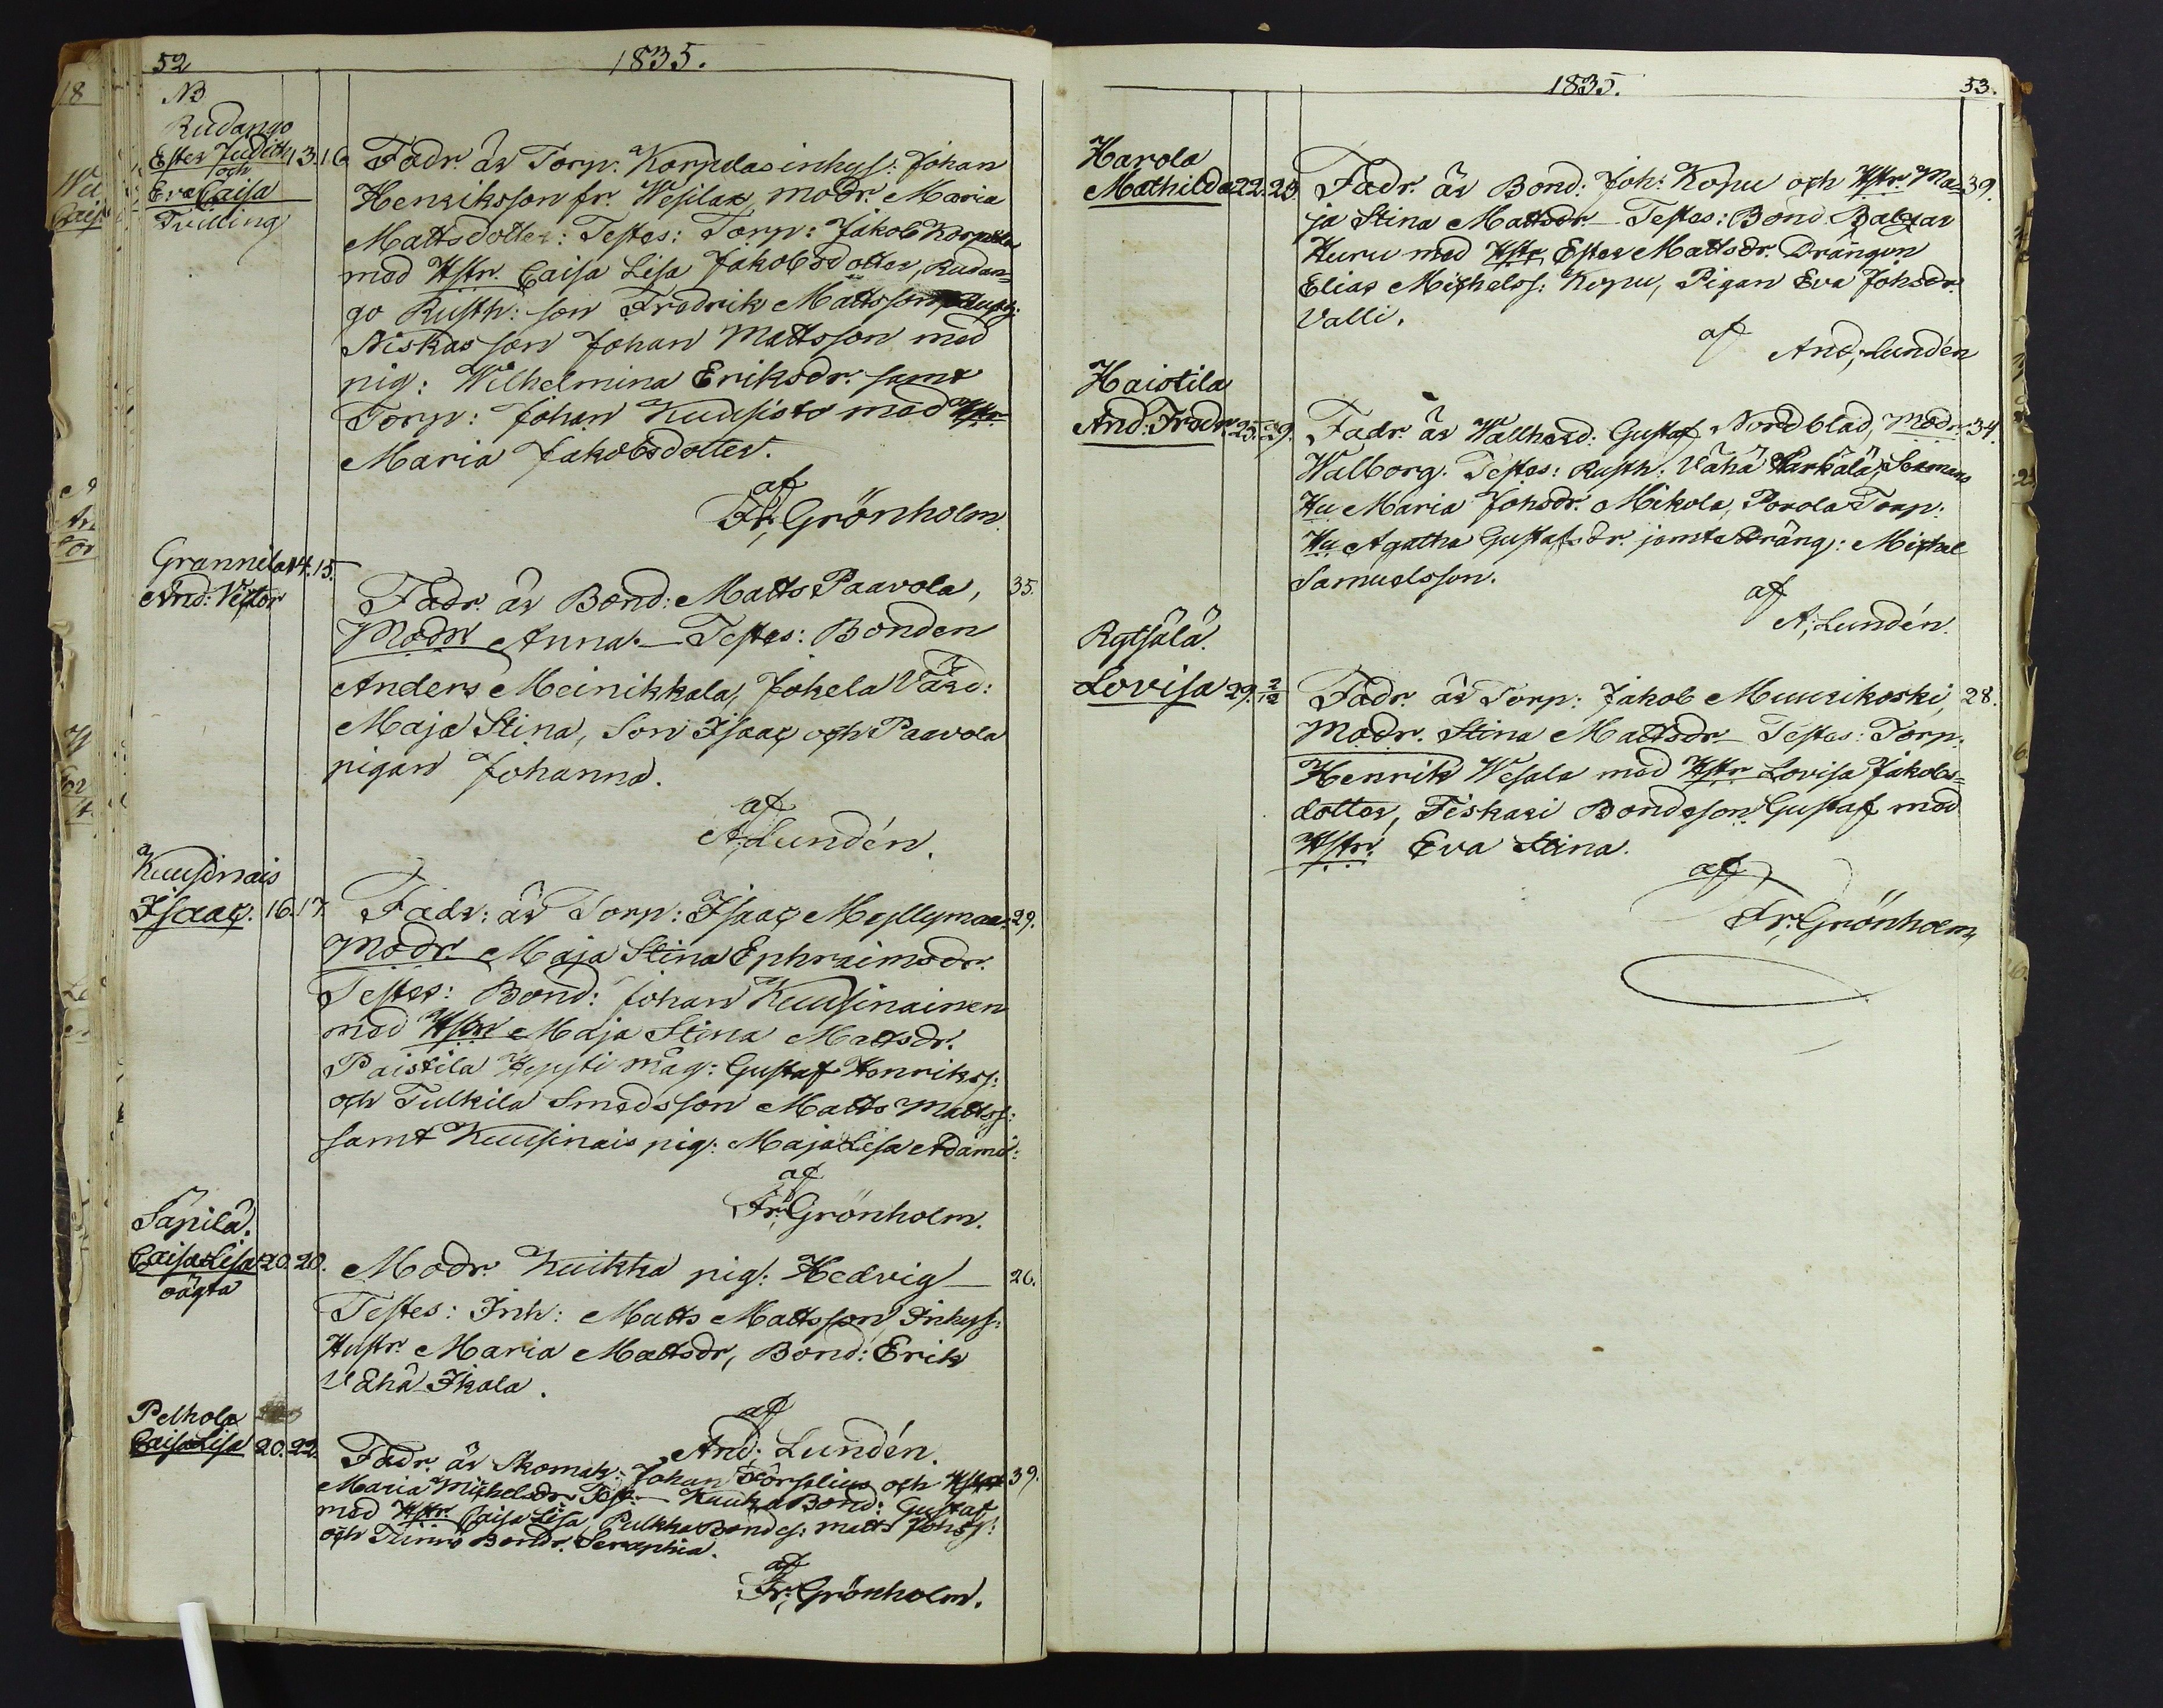 52
1835.
NB
Rudango
Ester Judith 13. 16.
och
Eva Caisa
Tvilling
Fadr. är Torp. Korpelas inhys: Johan
Henriksson fr. Wesilax, modr. Maria
Mattsdotter: Testes: Torp: Jakob Korpela
med Hstr. Caisa Lisa Jakobsdotter, Rudan=
go Rusth: son Fredrik Mattsson,
Niskas son Johan Mattsson med
pig: Wilhelmina Eriksdr. samt
Torp: Johan Kuusisto med Hstr.
Maria Jakobsdotter.
af
Fr; Grönholm.
Grannila 14. 15.
And: Victor
Fadr. är Bond: Matts Paavola, 35.
Modr Anna. Testes: Bonden
Anders Meinikkala, Jokela Värd:
Maja Stina, Son Isaac och Paavola
pigan Johanna.
af
A; Lundén.
Kuusinais
Isaac. 16. 17.
Fadr: är Torp: Isaac Myllymaa. 29.
Modr. Maja Stina Ephraimsdr.
Testes: Bond: Johan Kuusinainen
med Hstr Maja Stina Mattsdr.
Paistila Heysti måg: Gustaf Henrikss:
och Tulkila Smedsson Matts Mattss:
samt Kuusinais pig: Maja Lisa Adamd:
af
Fr; Grönholm.
Säpilä.
Caisa Lisa 20. 20.
oägta
Modr. Kuikka pig: Hedvig 26.
Testes: Inh: Matts Mattsson Inhys:
Hustr. Maria Mattsdr, Bond: Erik
Vähä Ikala.
af
And; Lundén.
Pelhola
Caisa Lisa 20. 22.
Fadr. är Skomak: Johan Forselius och Hstr 39.
Maria Michelsdr Test: Kuuka Bond: Gustaf
med Hstr. Caisa Lisa, Pulkka Bondes: Matts Johss:
och Tuiro Bondr. Seraphia.
af
Fr; Grönholm.
1835.
53.
Harola
Mathilda 22. 23.
Fadr. är Bond: Joh: Kopu och Hstr. Ma= 39.
ja Stina Mattsdr. Testes: Bond Balzar
Huru med Hstr Ester Mattsdr. Drängen
Elias Michelss: Kopu, Pigan Eva Johsdr.
Valli.
af
And; Lundén
Haistila
And: Fredr. 25. 29.
Fadr. är Wallhard: Gustaf Nordblad, Modr. 34.
Walborg. Testes: Rusth: Vähä Härkälä,
Hu Maria Johsdr. Mikola, Porola Torp:
Hu Agatha Gustafsdr. jemte Dräng: Michel
Samuelsson.
af
A; Lundén.
Rytsälä.
Lovisa 29. 2/12
Fadr. är Torp: Jakob Muurikoski, 28.
Modr. Stina Mattsdr. Testes: Torp:
Henrik Wesala med Hstr Lovisa Jakobs=
dotter, Fiskari Bondeson Gustaf med
Hstr. Eva Stina.
af
Fr; Grönholm